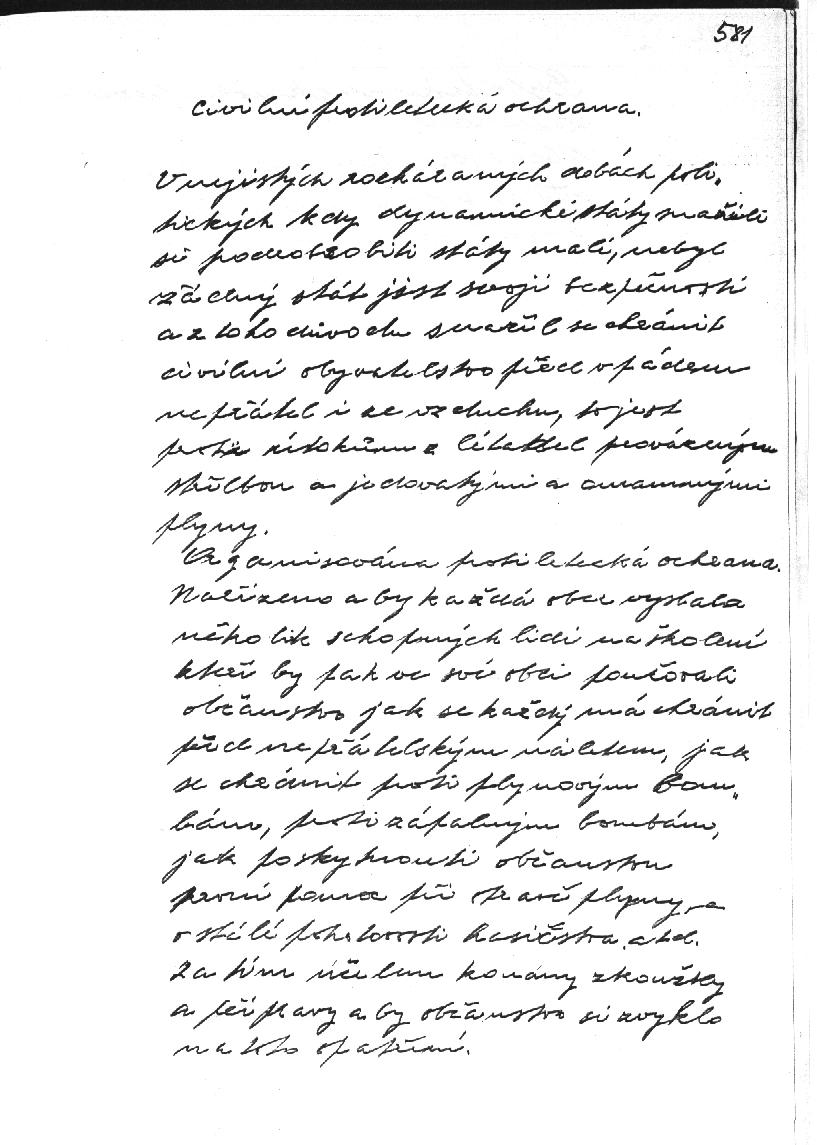 581
Civilní protiletecká ochrana.
V nejistých rozháraných dobách poli„
tických kdy dynamické státy snažili
si podrobiti státy malé, nebyl
žádný stát jist svojí bezpečností
a z toho důvodu snažil se chránit
civilní obyvatelstvo před vpádem
nepřátel i ze vzduchu, to jest
proti útokům z letadel prováděným
střelbou a jedovatými a omamnými
plyny.
Organisována protiletecká ochrana.
Nařízeno aby každá obec vyslala
několik schopných lidí na školení
kteří by pak ve své obci poučovali
občanstvo jak se každý má chránit
před nepřátelským náletem, jak
se chránit proti plynovým bom„
bám, proti zápalným bombám,
jak poskytnouti občanstvu
první pomoc při otravě plyny, a
o stálé pohotovosti hasičstva atd.
Za tím účelem konány zkoušky
a přípravy aby občanstvo si zvyklo
na toto opatření.